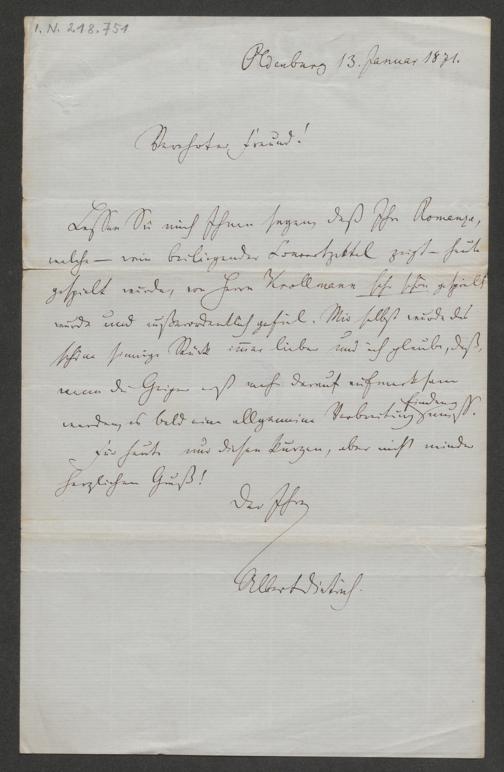 I. N. 218.751
Oldenburg 13. Januar 1871.
Verehrter Freund!
Lassen Sie mich Ihnen sagen, daß Ihre Romanze,
welche — wie beiliegender Concertzettel zeigt — heute
gespielt wurde, von Herrn Krollmann sehr schön gespielt
wurde und außerordentlich gefiel. Mir selbst wurde das
schöne sinnige Stück immer lieber und ich glaube, daß,
wenn die Geiger erst mehr darauf aufmerksam
werden, es bald eine allgemeine Verbreitung finden muss.
Für heute nur diesen kurzen, aber nicht minder
herzlichen Gruß!
Der Ihre
Albert Dietrich.